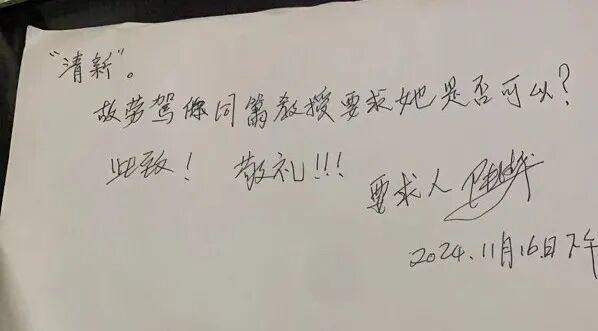 “清新”。
故劳驾你同篇教授要求她是否可以？
此致！ 敬礼!!!
要求人
2024.11月16日下午